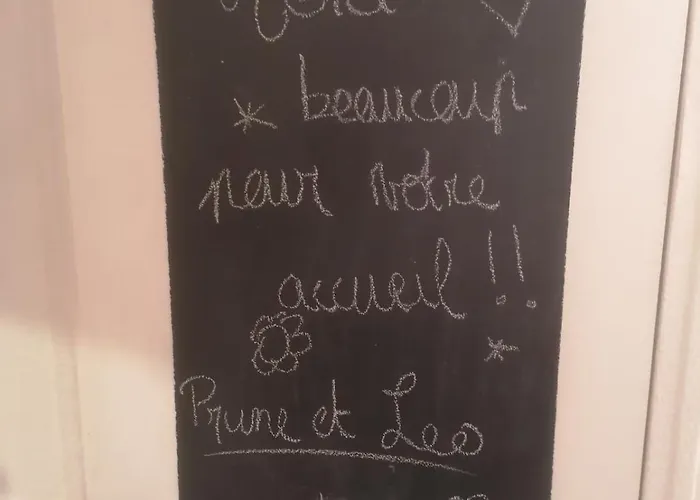 beaucoup
pour votre
accueil !!
Prune et Leo